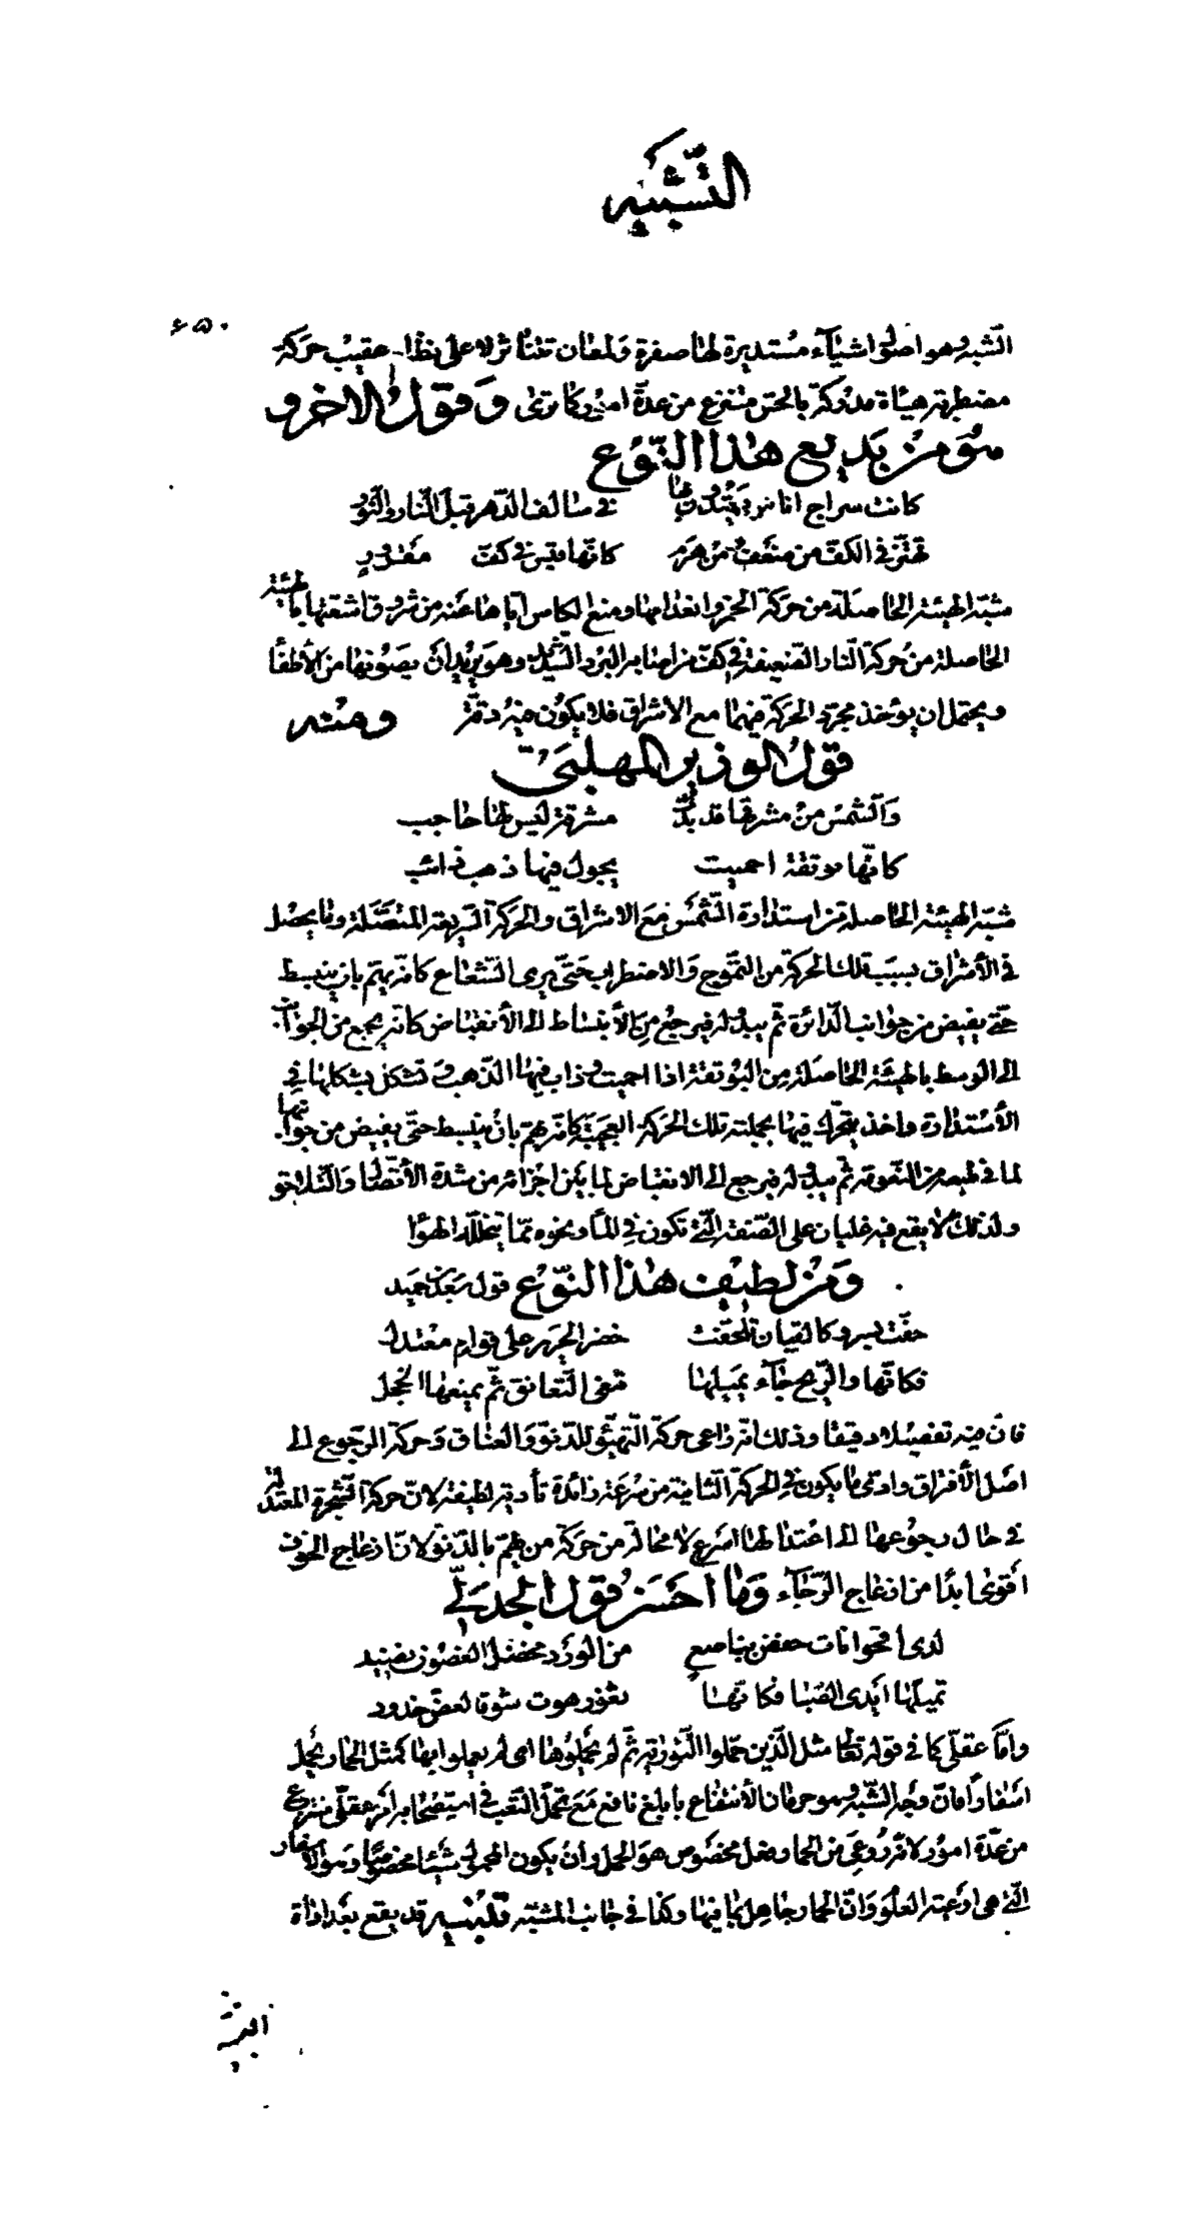 التشبيه
٦٥٠
الشبه وهو اصلوا اشياء مستديرة لها صفرة ولمعان تتناثر لا على نظام عقيب حركة
مضطربة هيئاة مدركة بالحس منتزع من عدة امور كما ترى وقول الاخر و
هو من بديع هذا النوع
كانت سراج اناس في سالف الدهر قبل النار والنور
تهتز في الكف من ضعف ومن هرم كانها قبس في كف مقرور
شبه الهيئة الحاصلة من حركة الخمر وانعدامها ومنع الكاس اياها عنه من شروق اشعتها بالهيئة
الحاصلة من حركة النار الضعيفة في كف من اصابه البرد الشديد وهو يريد ان يصونها من الأطفأ
ويحتمل ان يؤخذ مجرد الحركة فيهما مع الاشراق فلا يكون فيه دقة ومنه
قول الوزير المهلبي
والشمس من مشرقها قد بدت مشرقة ليس لها حاجب
كانها بوتقة احميت يجول فيها ذهب ذائب
شبه الهيئة الحاصلة من استدارة الشمس مع الاشراق والحركة السريعة المتصلة وما يحصل
في الأشراق بسبب تلك الحركة من التموج والاضطراب حتى يرى الشعاع كانه يهم بان ينبسط
حتى يفيض من جوانب الدائرة ثم يبدو له فيرجع من الأنبساط الى الأنقباض كانه يجمع من الجوانب
الى الوسط بالهيئة الحاصلة من البوتقة اذا احميت وذاب فيها الذهب وتشكل بشكلها في
الأستدارة واخذ يتحرك فيها بجملته تلك الحركة العجيبة كانه يهم بان ينبسط حتى يفيض من جوانبها
لما في طبعه من النعومة ثم يبدو له فيرجع الى الانقباض لما بين اجزائه من شدة الأتصال والتلاحق
ولذلك لا يقع فيه غليان على الصفة التي تكون في الماء ونحوه مما يتخلله الهواء
ومن لطيف هذا النوع قول سعد بن حميد
حفت بسرو كالقيان تلحفت خضر الحرير على قوام معتدل
فكانها والريح جاء يميلها تبغى التعانق ثم يمنعها الخجل
فان فيه تفصيلا دقيقا وذلك انه راعى حركة التهيئ للدنو والعناق وحركة الرجوع الى
اصل الأفتراق وادى ما يكون في الحركة الثانية من سرعة زائدة تأدية لطيفة لان حركة الشجرة المعتدلة
في حال رجوعها الى اعتدالها اسرع لا محالة من حركة من يهم بالدنو لان ازعاج الخوف
اقوى ابدا من ازعاج الرجاء وما احسن قول الجدلي
لدى أقحوانات بناصع من الورد مخضل الغصون نضيد
تميلها أيدى الصبا فكانها ثغور هوت شوقا لعض خدود
واما عقلى كما في قوله تعالى مثل الذين حملوا التوراية ثم لم يحملوها اى لم يعملوا بها كمثل الحمار يحمل
اسفارا فان وجه الشبه وهو حرمان الأنتفاع بأبلغ نافع مع تحمل التعب في استصحابه امر عقلى منتزع
من عدة امور لانه روعى من الحمار فعل مخصوص هو الحمل وان يكون المحمول شيئا مخصوصا وهو الاسفار
التي هى اوعية العلوم وان الحمار جاهل بما فيها وكذا في جانب المشبه تنبيه قد يقع بعد اداة
التشبيه